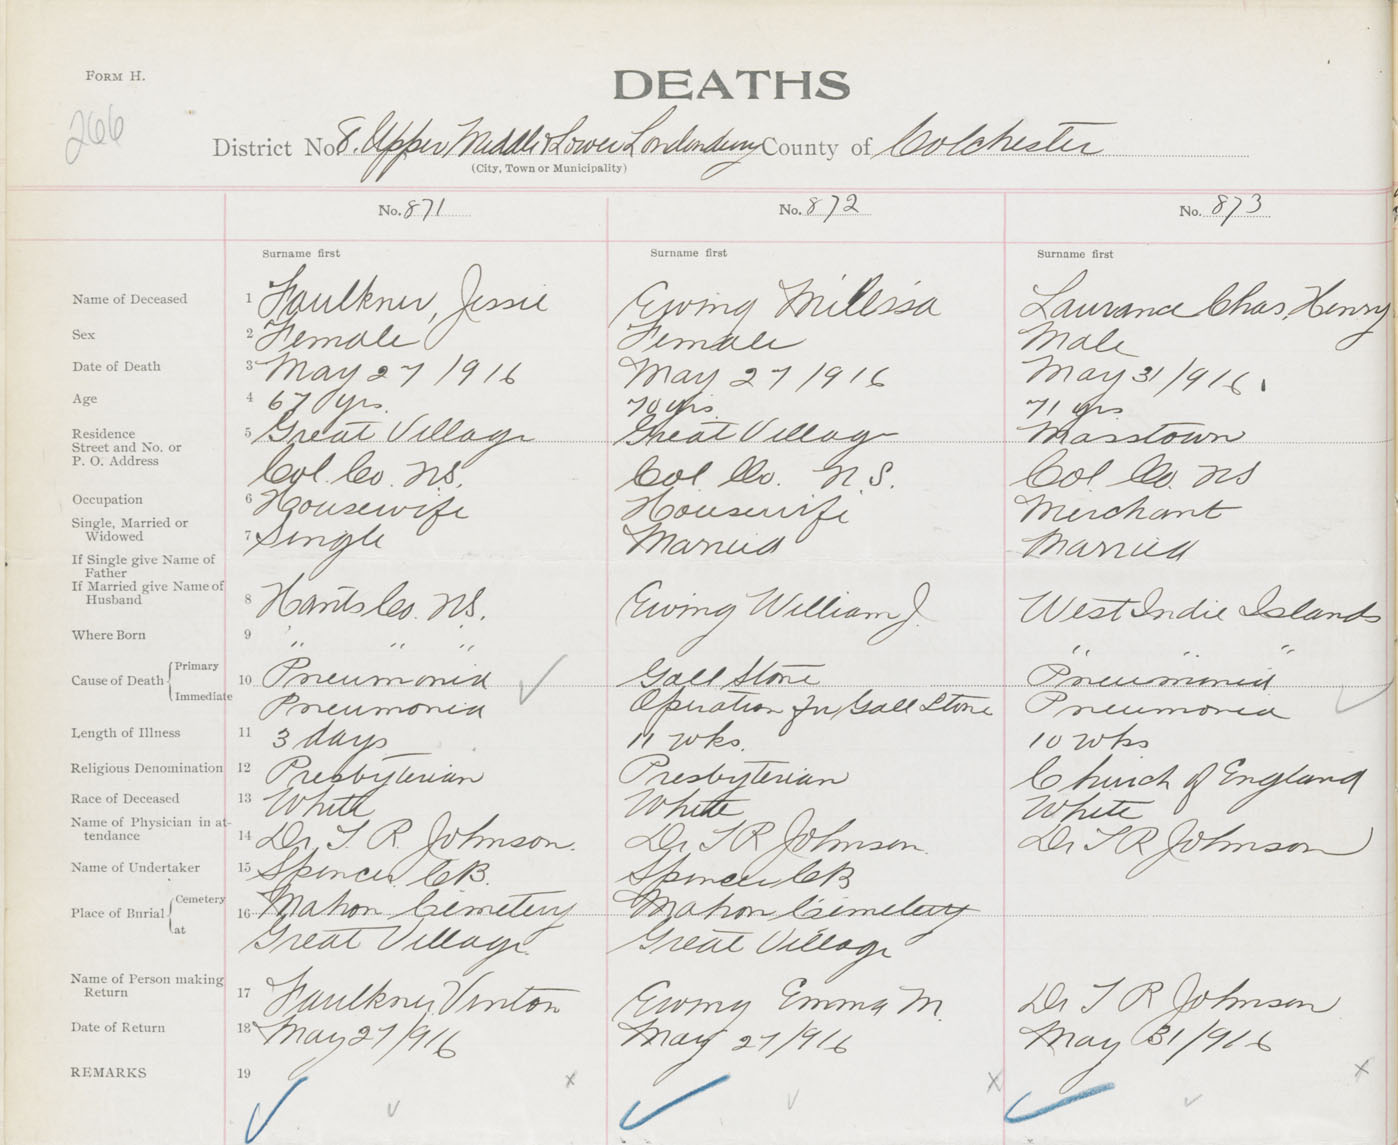 FORM H.
DEATHS
266
District No 8. Upper, Middle & Lower Londonderry County of Colchester
(City, Town or Municipality)
No. 871 No. 872 No. 873
Surname first Surname first Surname first
Name of Deceased 1 Faulkner, Jessie Ewing Milissa Laurance Chas. Henry
Sex 2 Female Female Male
Date of Death 3 May 27 1916 May 27 1916 May 31/916.
Age 4 67 yrs. 70 yrs 71 yrs
Residence 5 Great Village Great Village Masstown
Street and No. or
P. O. Address Col. Co. N.S. Col Co. N.S. Col Co. NS
Occupation 6 Housewife Housewife Merchant
Single, Married or
Widowed 7 Single Married Married
If Single give Name of
Father
If Married give Name of
Husband 8 Hants Co. NS. Ewing William J. West Indie Islands
Where Born 9 " " " " " "
Cause of Death Primary 10 Pneumonia Gall Stone Pneumonia
Immediate Pneumonia Operation for Gall Stone Pneumonia
Length of Illness 11 3 days 11 wks. 10 wks
Religious Denomination 12 Presbyterian Presbyterian Church of England
Race of Deceased 13 White White White
Name of Physician in at-
tendance 14 Dr. T. R. Johnson. Dr T R Johnson. Dr T R Johnson
Name of Undertaker 15 Spencer C.B. Spencer C B
Place of Burial Cemetery 16 Mahon Cemetery Mahon Cemetery
at Great Village Great Village
Name of Person making
Return 17 Faulkner, Vinton Ewing Emma M. Dr T R Johnson
Date of Return 18 May 27/916 May 27/916 May 31/916
REMARKS 19
x x x